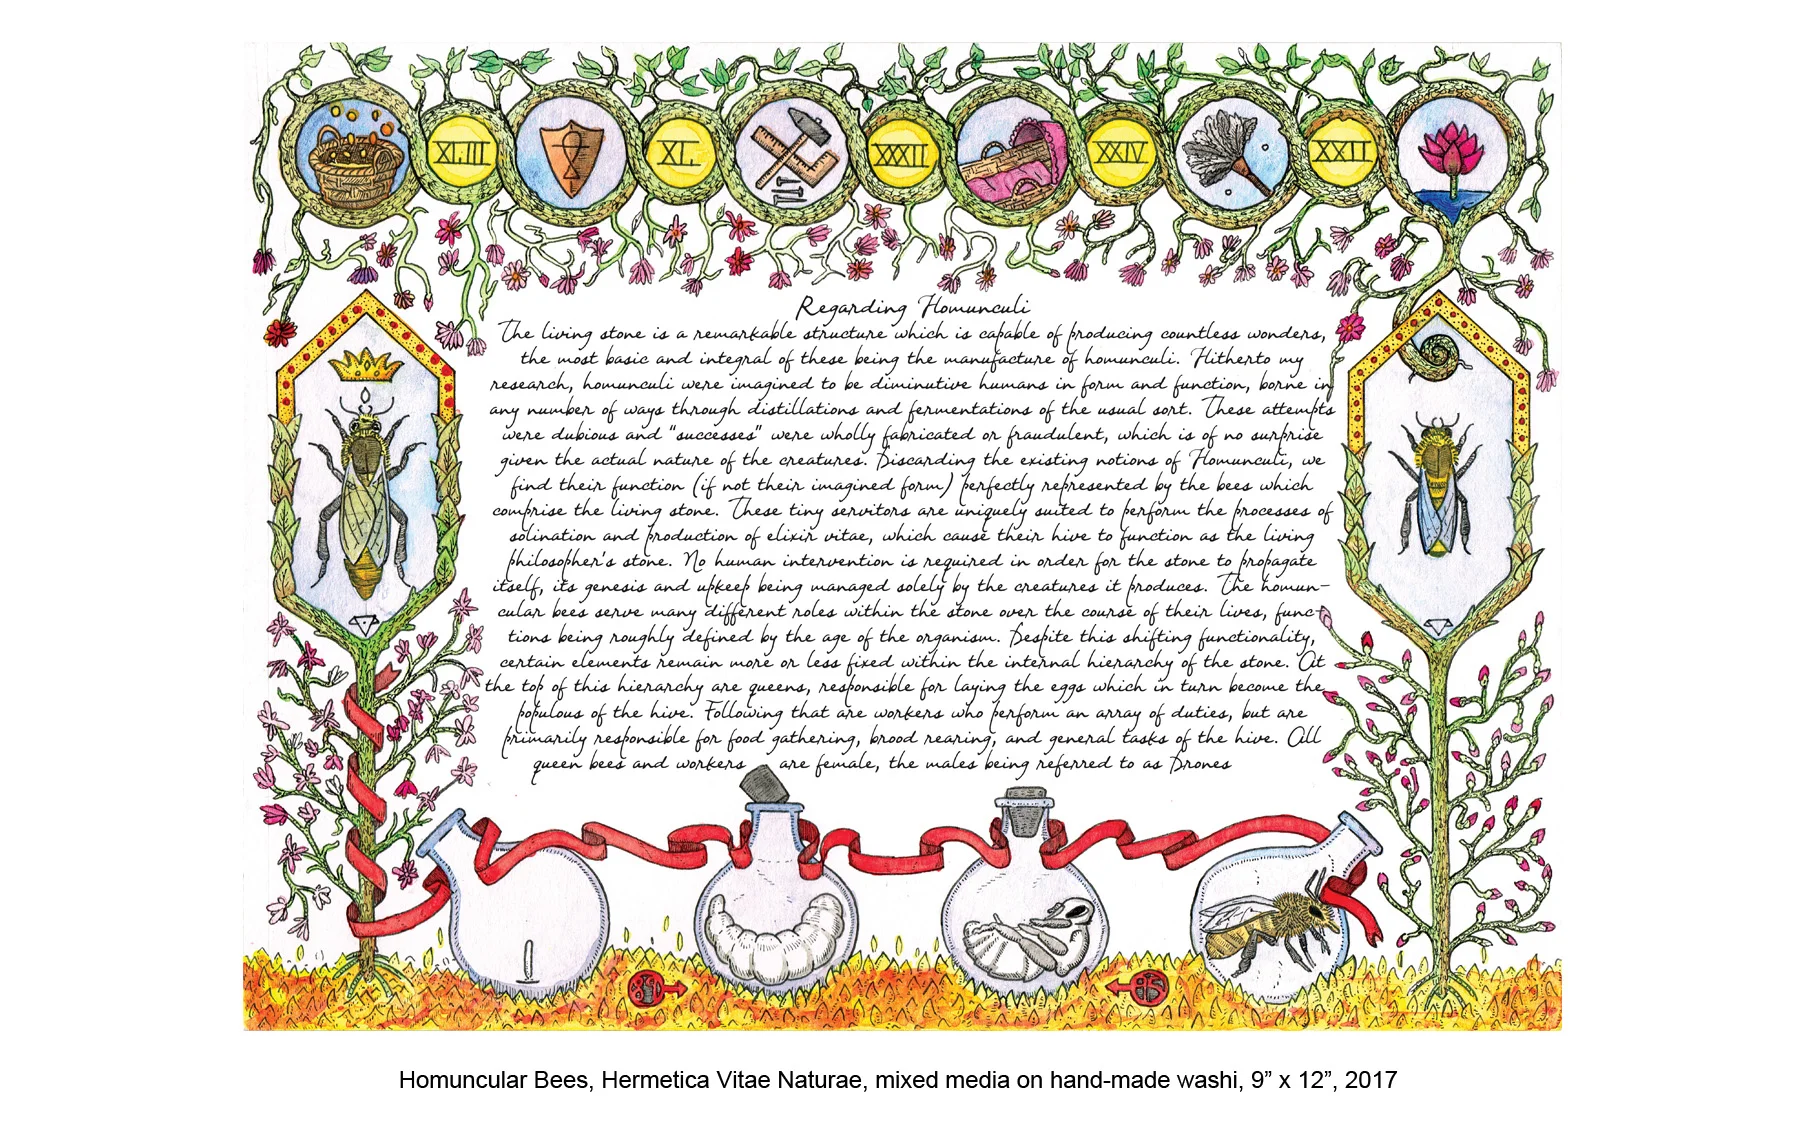 XLIII XL XXXII XXIV XXII
Regarding Homunculi
The living stone is a remarkable structure which is capable of producing countless wonders,
the most basic and integral of these being the manufacture of homunculi. Hitherto my
research, homunculi were imagined to be diminutive humans in form and function, borne in
any number of ways through distillations and fermentations of the usual sort. These attempts
were dubious and "successes" were wholly fabricated or fraudulent, which is of no surprise
given the actual nature of the creatures. Discarding the existing notions of Homunculi, we
find their function (if not their imagined form) perfectly represented by the bees which
comprise the living stone. These tiny servitors are uniquely suited to perform the processes of
solination and production of elixir vitae, which cause their hive to function as the living
philosopher's stone. No human intervention is required in order for the stone to propagate
itself, its genesis and upkeep being managed solely by the creatures it produces. The homun-
cular bees serve many different roles within the stone over the course of their lives, func-
tions being roughly defined by the age of the organism. Despite this shifting functionality,
certain elements remain more or less fixed within the internal hierarchy of the stone. At
the top of this hierarchy are queens, responsible for laying the eggs which in turn become the
populous of the hive. Following that are workers who perform an array of duties, but are
primarily responsible for food gathering, brood rearing, and general tasks of the hive. All
queen bees and workers are female, the males being referred to as Drones
Homuncular Bees, Hermetica Vitae Naturae, mixed media on hand-made washi, 9” x 12”, 2017